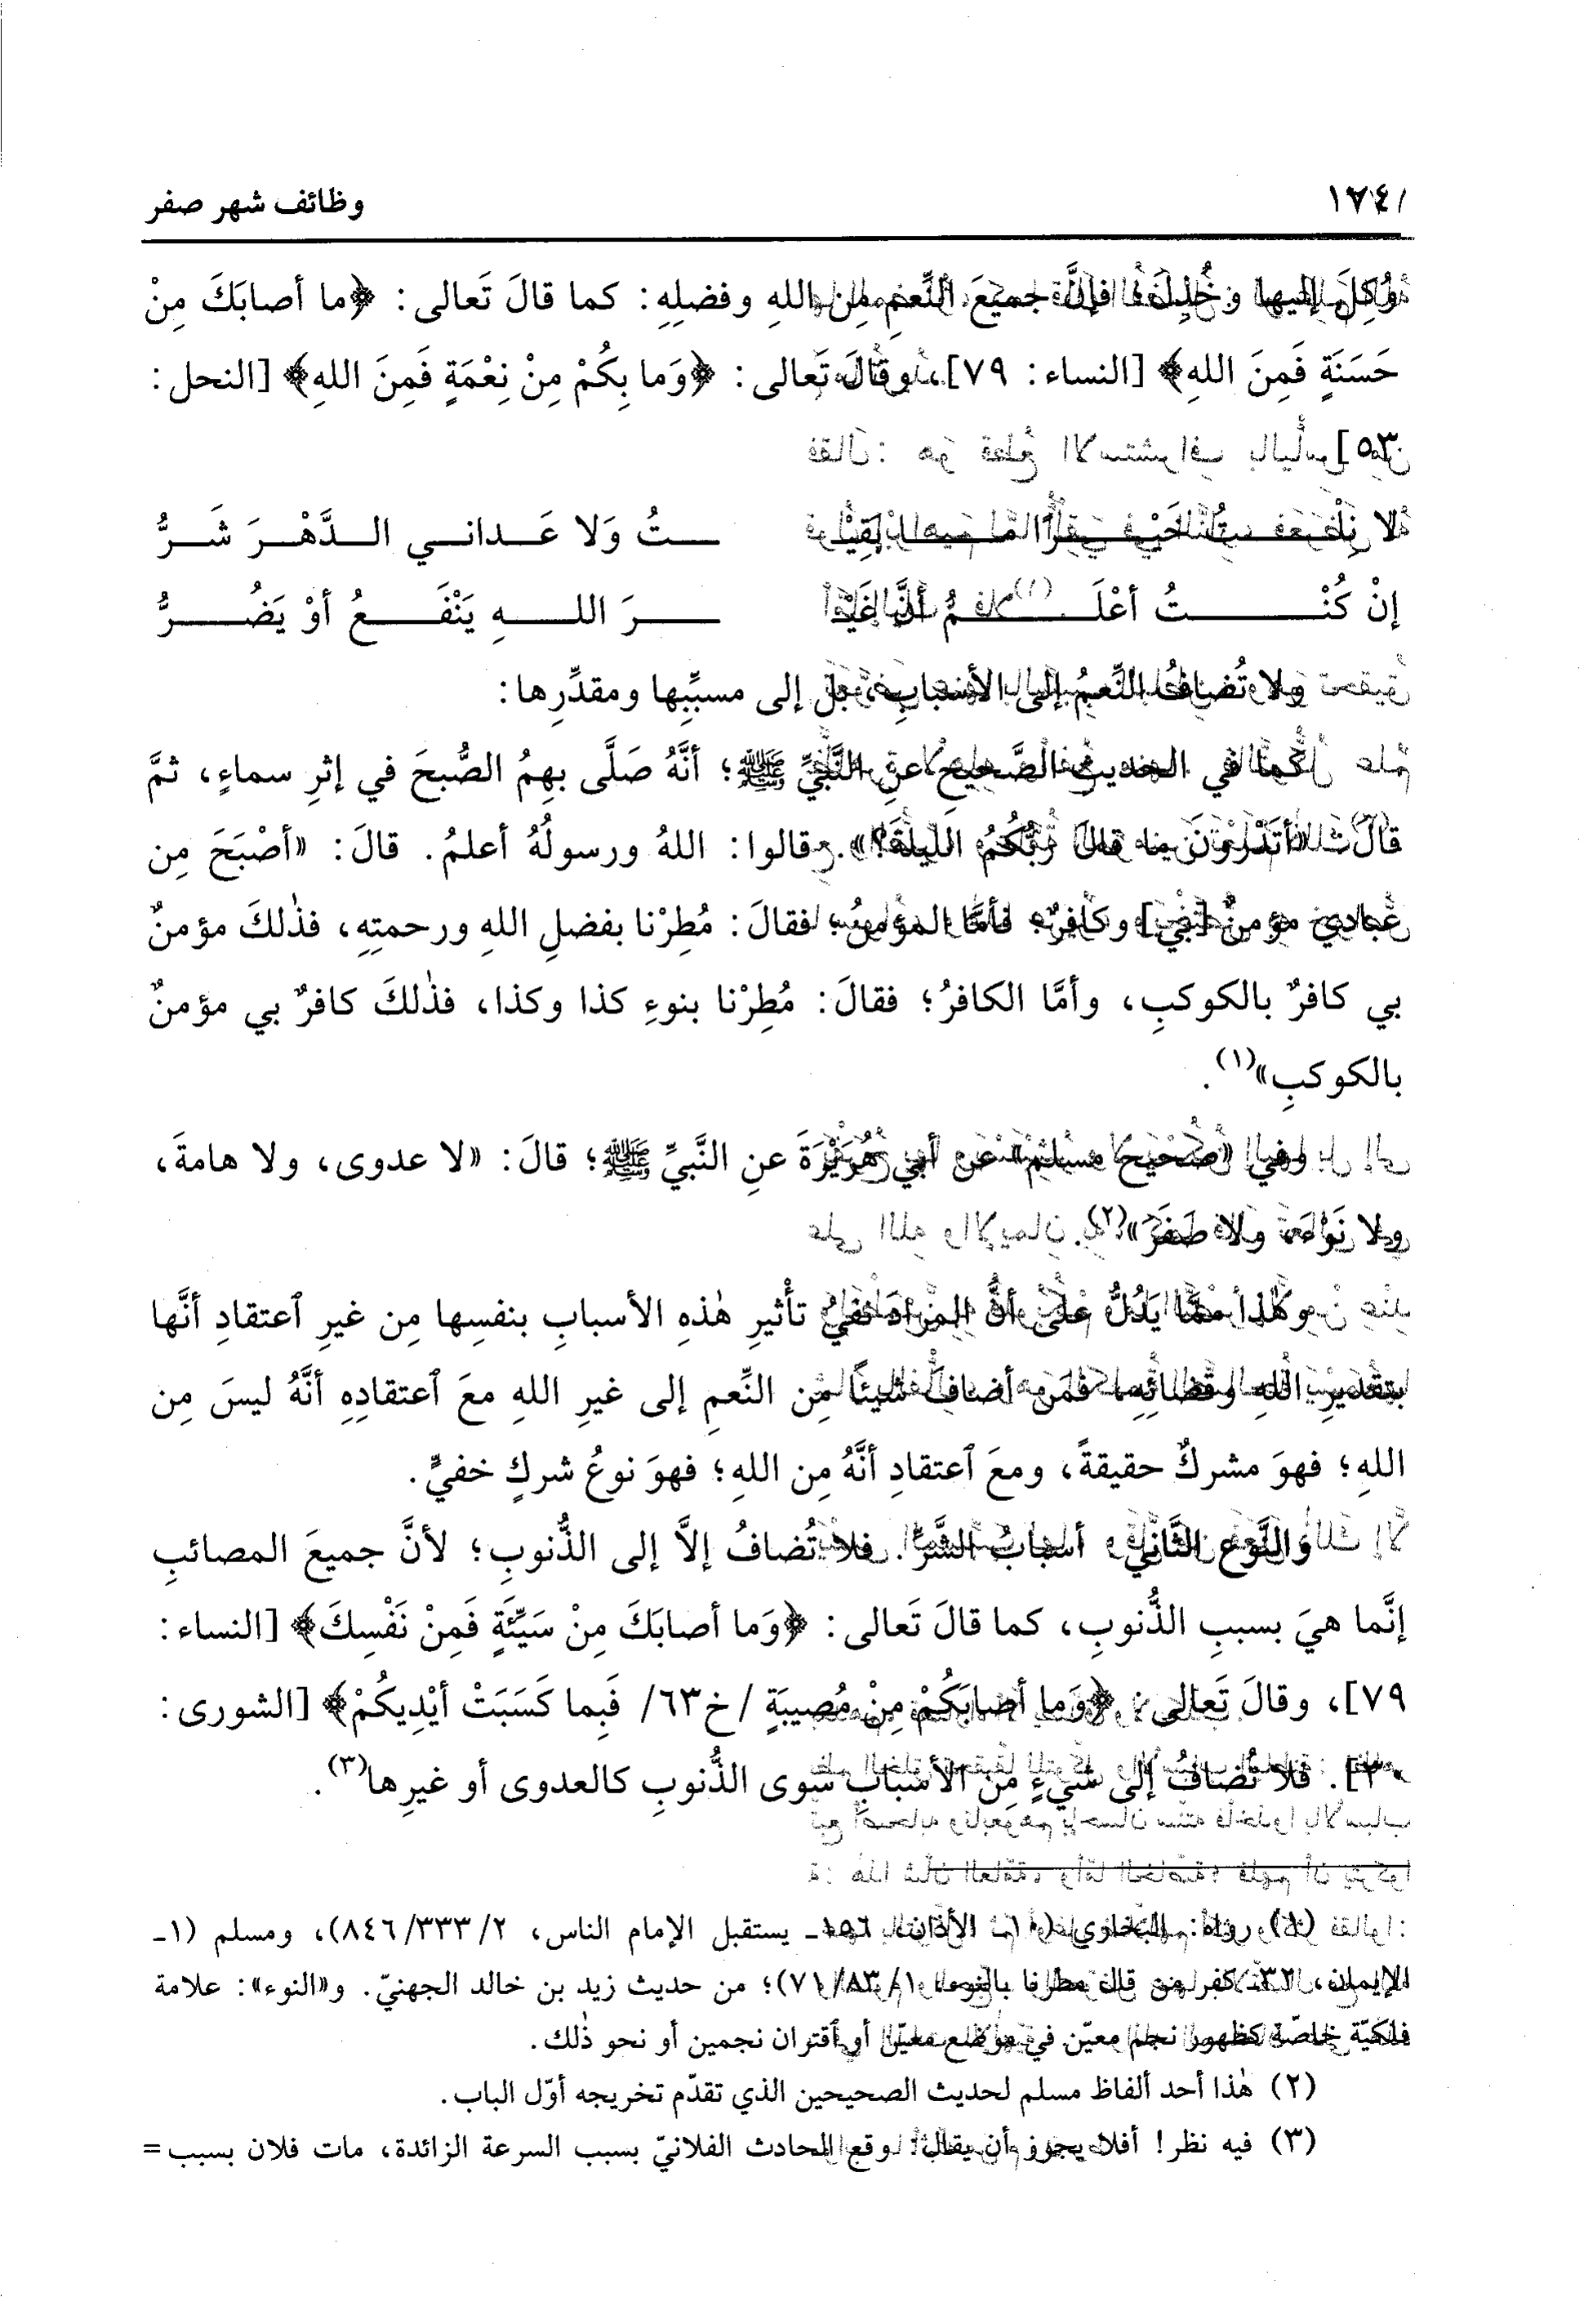 ١٧٤
وظائف شهر صفر
وُكِلَ إليها وخُذِلَ؛ فإنَّ جميعَ النِّعمِ مِن اللهِ وفضلِهِ: كما قالَ تَعالى: ﴿ما أصابَكَ مِنْ
حَسَنَةٍ فَمِنَ اللهِ﴾ [النساء: ٧٩]، وقالَ تَعالى: ﴿وَما بِكُمْ مِنْ نِعْمَةٍ فَمِنَ اللهِ﴾ [النحل:
٥٣]
لا نِلْتُ خَيْرًا ما بَقِيْـ ـتُ وَلا عَداني الدَّهْرَ شَرُّ
إنْ كُنْتُ أعْلَمُ أنَّ غَيْـ ـرَ اللهِ يَنْفَعُ أوْ يَضُرُّ
ولا تُضافُ النِّعمُ إلى الأسبابِ، بل إلى مسبِّبِها ومقدِّرِها:
كما في الحديثِ الصَّحيحِ عنِ النَّبيِّ ﷺ؛ أنَّهُ صَلَّى بهِمُ الصُّبحَ في إثرِ سماءٍ، ثمَّ
قالَ: «أتَدْرونَ ما قالَ رَبُّكُمُ اللَّيلةَ؟». قالوا: اللهُ ورسولُهُ أعلمُ. قالَ: «أصْبَحَ مِن
عبادي مؤمنٌ [بي] وكافرٌ؛ فأمَّا المؤمنُ؛ فقالَ: مُطِرْنا بفضلِ اللهِ ورحمتِهِ، فذٰلكَ مؤمنٌ
بي كافرٌ بالكوكبِ، وأمَّا الكافرُ؛ فقالَ: مُطِرْنا بنوءِ كذا وكذا، فذٰلكَ كافرٌ بي مؤمنٌ
بالكوكبِ»(١).
وفي «صحيح مسلم» عن أبي هُرَيْرَةَ عنِ النَّبيِّ ﷺ؛ قالَ: «لا عدوى، ولا هامةَ،
ولا نَوْءَ، ولا صَفَرَ»(٢).
وهٰذا ممَّا يَدُلُّ على أنَّ المرادَ نفيُ تأْثيرِ هٰذهِ الأسبابِ بنفسِها مِن غيرِ ٱعتقادِ أنَّها
بتقديرِ اللهِ وقضائِهِ، فمَن أضافَ شيئًا مِن النِّعمِ إلى غيرِ اللهِ معَ ٱعتقادِهِ أنَّهُ ليسَ مِن
اللهِ؛ فهوَ مشركٌ حقيقةً، ومعَ ٱعتقادِ أنَّهُ مِن اللهِ؛ فهوَ نوعُ شركٍ خفيٍّ.
والنَّوع الثَّاني: أسبابُ الشَّرِّ. فلا تُضافُ إلاَّ إلى الذُّنوبِ؛ لأنَّ جميعَ المصائبِ
إنَّما هيَ بسببِ الذُّنوبِ، كما قالَ تَعالى: ﴿وَما أصابَكَ مِنْ سَيِّئَةٍ فَمِنْ نَفْسِكَ﴾ [النساء:
٧٩]، وقالَ تَعالى: ﴿وَما أصابَكُمْ مِنْ مُصيبَةٍ /خ٦٣/ فَبِما كَسَبَتْ أيْدِيكُمْ﴾ [الشورى:
٣٠]. فلا تُضافُ إلى شيءٍ مِن الأسبابِ سوى الذُّنوبِ كالعدوى أو غيرِها(٣).
(١) رواه: البخاري (١٠ـ الأذان، ١٥٦ـ يستقبل الإمام الناس، ٨٤٦/٣٣٣/٢)، ومسلم (١ـ
الإيمان، ٣٢ـ كفر من قال مطرنا بالنوء، ٧١/٨٣/١)؛ من حديث زيد بن خالد الجهنيّ. و«النوء»: علامة
فلكيّة خاصّة كظهور نجم معيّن في موضع معيّن أو ٱقتران نجمين أو نحو ذٰلك.
(٢) هٰذا أحد ألفاظ مسلم لحديث الصحيحين الذي تقدّم تخريجه أوّل الباب.
(٣) فيه نظر! أفلا يجوز أن يقال: وقع الحادث الفلانيّ بسبب السرعة الزائدة، مات فلان بسبب =